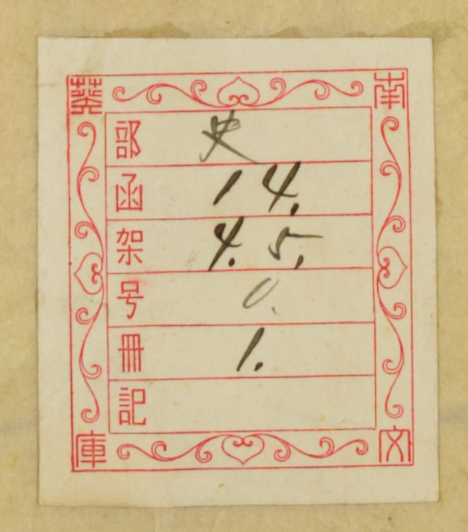 南葵文庫
部 史
函 14.
架 4.5.
号 0.
冊 1.
記